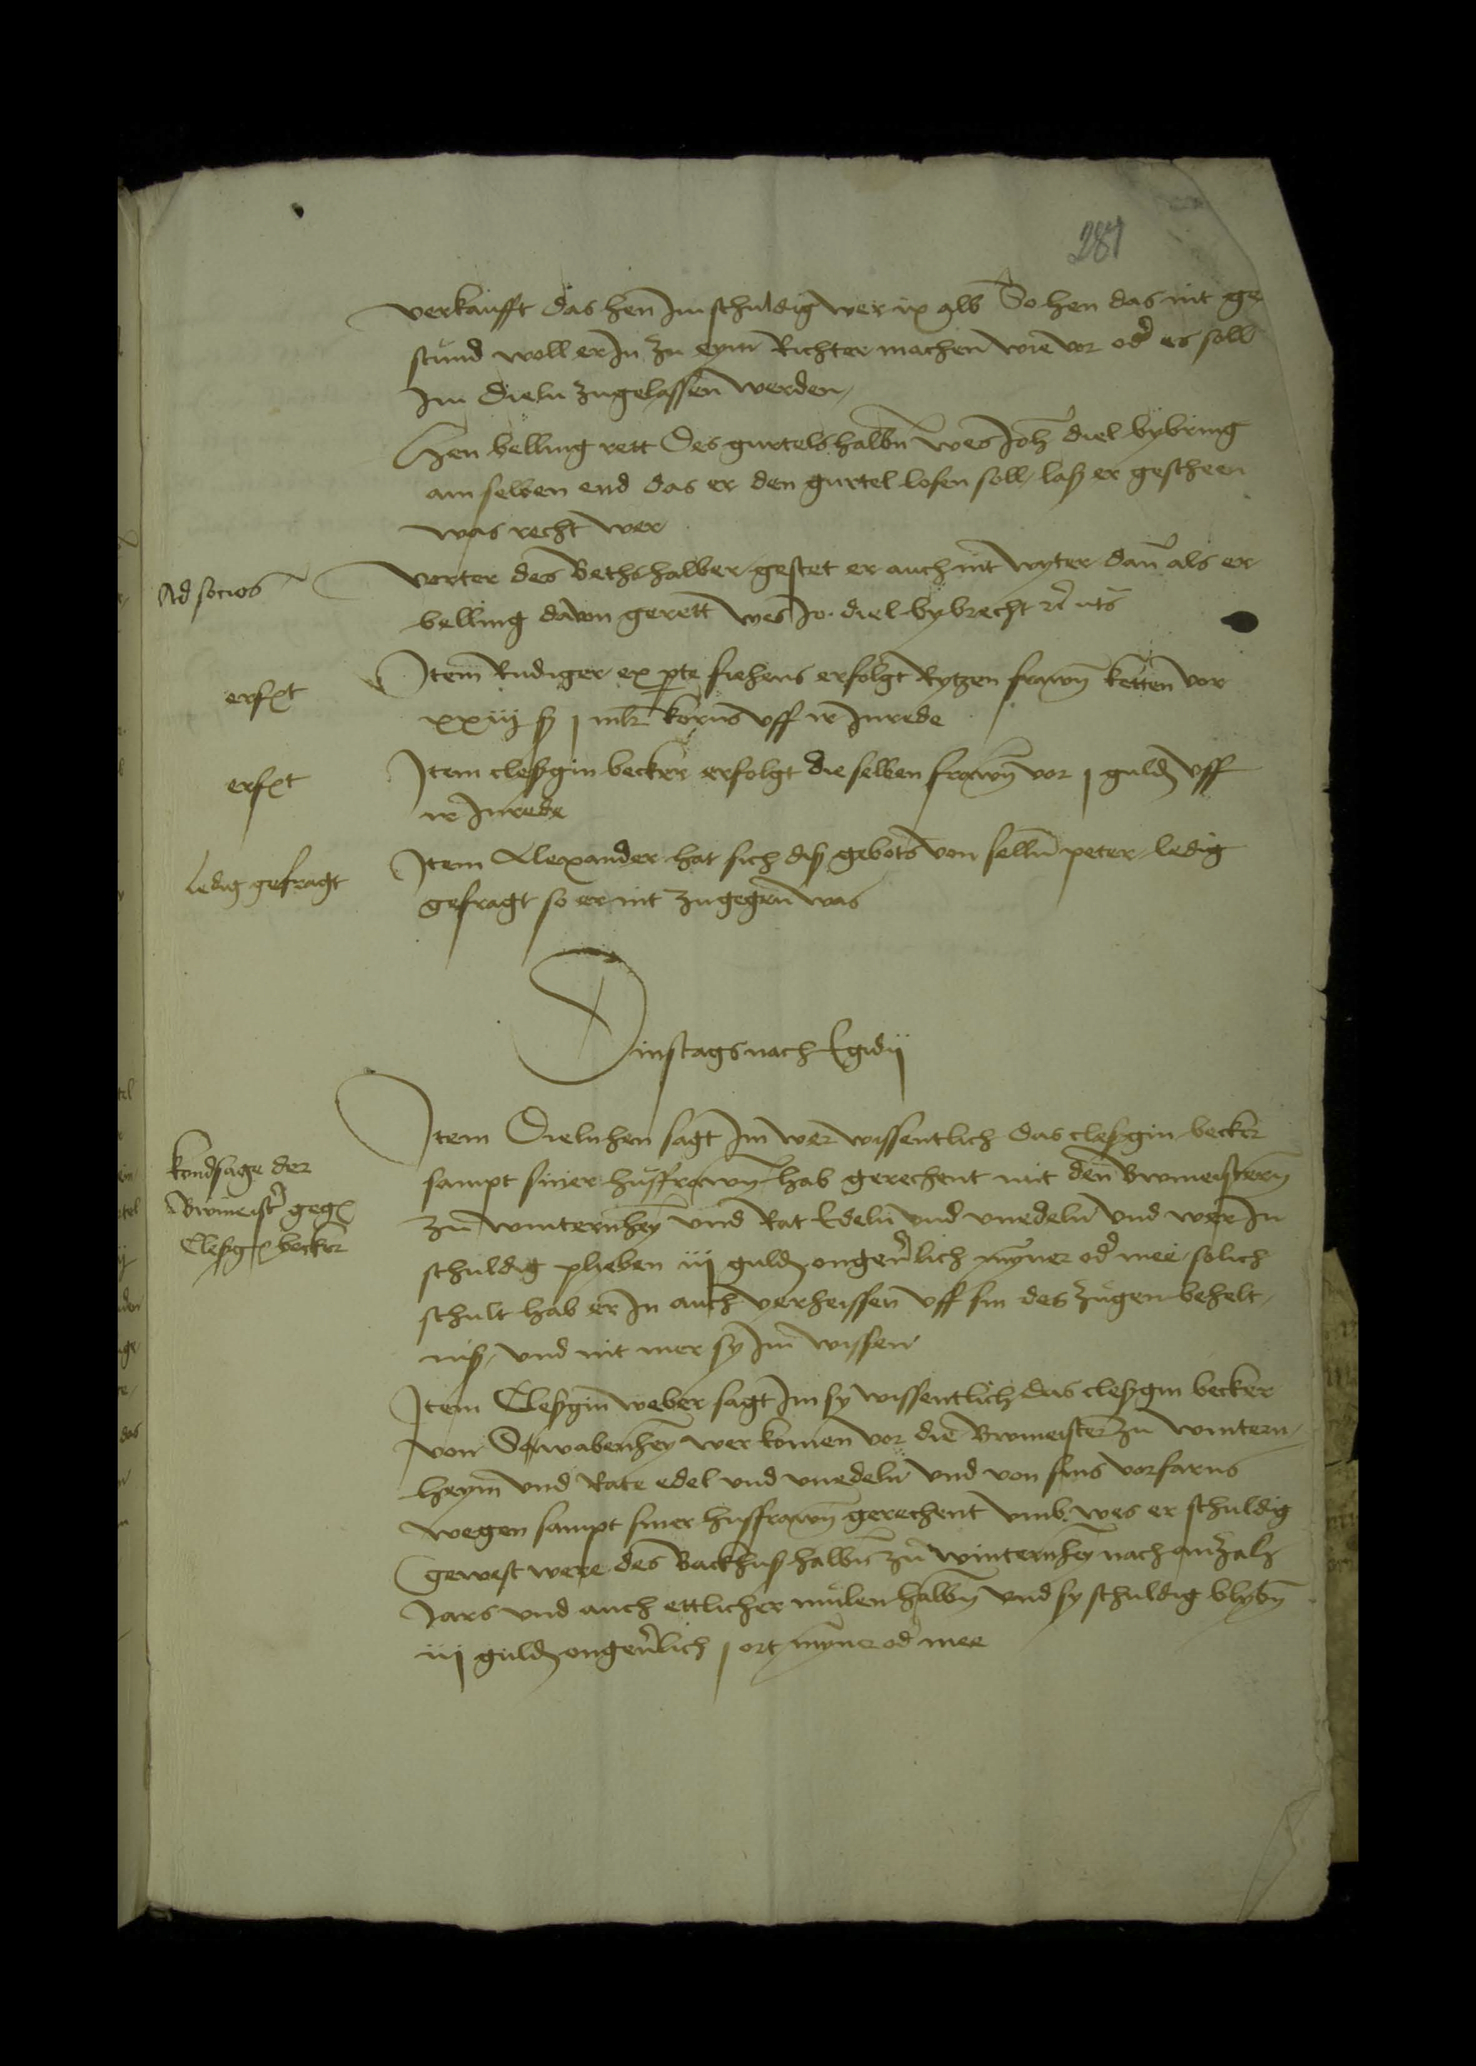 281
verkaufft das hen im schuldig wer ix alb So hen das nit ge
stund woll er In zu eym Richter machen wie vor od es soll
Im Dieln zugelassen werden
Hen belling rett Des gurtels halbn wes Joh diel bybring
am selben end das er den gurtel losen soll / laß er gescheen
was recht wer
Ad socios
vorter des Beths halber / gestet er auch nit wyter dan als er
belling davon gerett wes Jo. diel bybrecht ut
erft
Item Rudiger ex pte fiehens erfolgt Rytzen frawn ketten vor
xxiij ß j mlr korns uff ir Inrede
erft
Item cleßgin becker erfolgt die selben frawn vor j guld uff
ir Inrede
ledig gefragt
Item Alexander hat sich diß gebots von selln peter / ledig
gefragt so er nit zugegen was
Dinstags nach Egidij
kondsage der
Bwmeist geg
Cleßg becker
Item Dielnhen sagt Im wer wissentlich das cleßgin becker
sampt siner hußfrawn hab gerechent mit den Bwmeistern
zu winternhey und Rat Edeln und unedeln und wer In
schuldig plieben iij guld ongeverlich myner od mee / solich
schult hab er In auch verheissen uff sin des zugen behelt /
niß / und nit mer sy Im wissen
Item Cleßgin weber sagt Im sy wissentlich das cleßgin becker
von Swabenhey wer komen vor die Bwmeister zu wintern /
heym und Rate edel und unedeln und von sins vorfarns
wegen sampt siner hußfrawn gerechent umb wes er schuldig
gewest were des Backhuß halbn zu winternhey nach anzal
Jars und auch ettlicher mulen halbn und sy schuldig blybn
iij guld ongeverlich j ort myner od mee